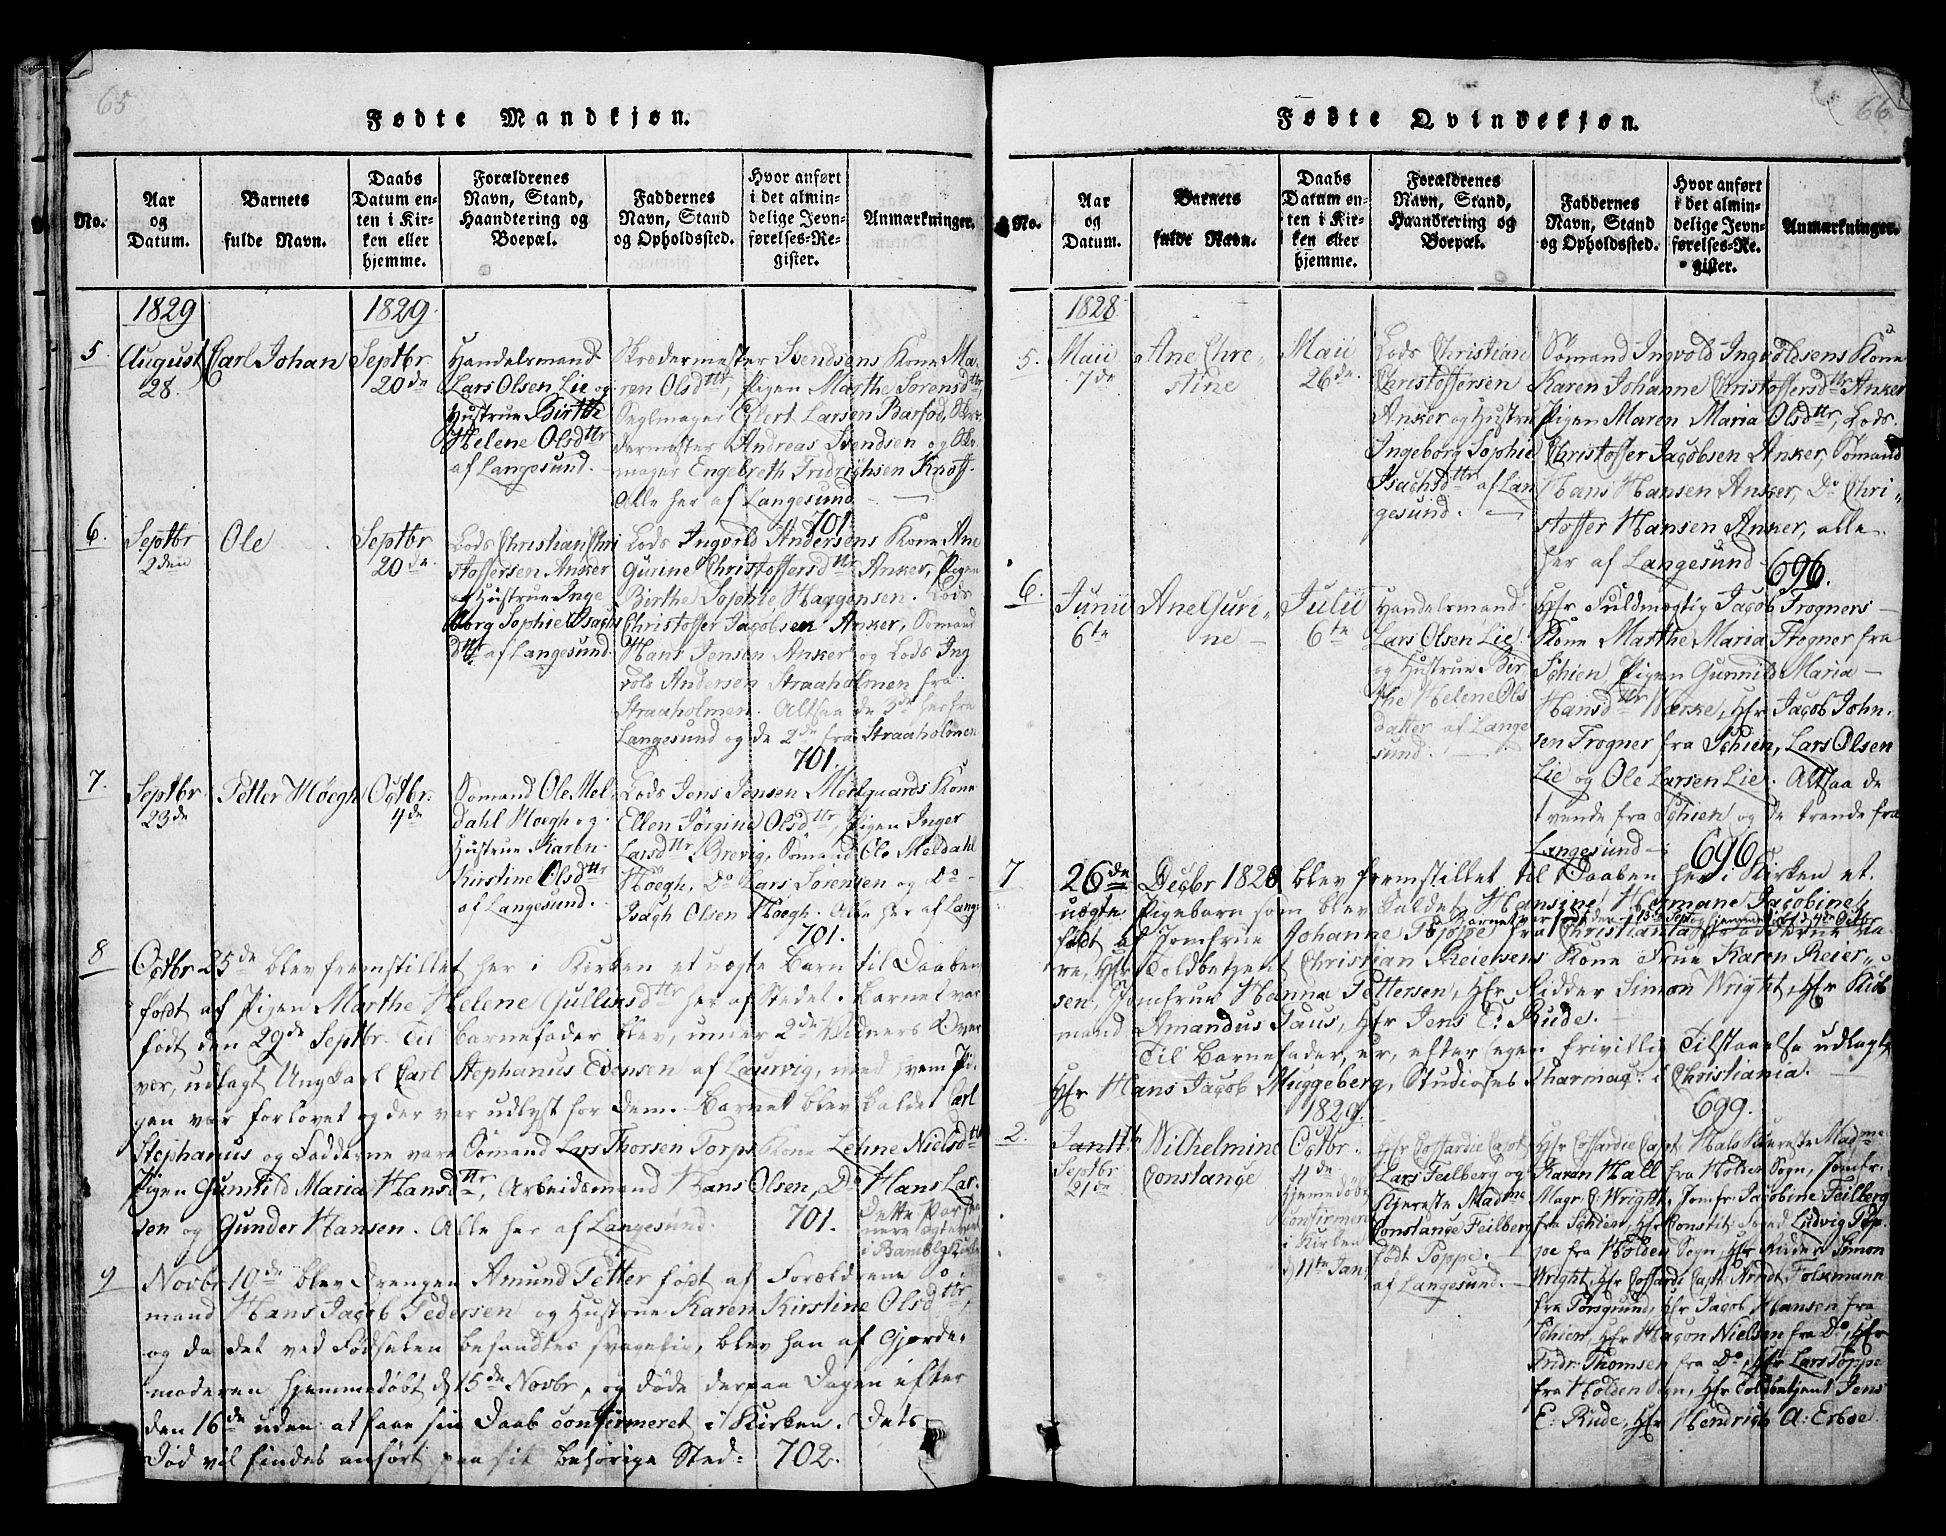 65
Fødte Mandkjøn.
No.
Aar og Datum.
Barnets fulde Navn.
Daabs Datum enten i Kirken eller hjemme.
Forældrenes Navn, Stand, Haandtering og Boepæl.
Faddernes Navn, Stand og Opholdssted.
Hvor anført i det almindelige Jevnførelses-Register.
Anmærkninger.
1829
1829
5.
August
28.
Carl Johan
Septbr
20de
Handelsmand
Lars Olsen Lie og
Hustrue Birthe
Helene Olsdttr
af Langesund.
Skrædermester Svendsens Kone Ma-
ren Olsdttr, Pigen Marthe Sørensdttr,
Seglmager Ebert Larsen Barfod, Skræ-
dermester Andreas Svendsen og
mager Engelbreth Fridrichsen Knoff.
Alle her af Langesund
701.
6.
Septbr
2den
Ole
Septbr
20de
Lods Christian Chri
stoffersen Anker
og Hustrue Inge
borg Sophie Isachs
dttr af Langesund.
Lods Ingvold Andersens Kone Ane
Gurine Christoffersdttr Anker, Pigen
Birthe Sophie Haggensen. Lods
Christoffer Jacobsen Anker, Sømand
Hans Jensen Anker og Lods Ing
vold Andersen Straaholmen fra
Straaholmen. Altsaa de 3de her fra
Langesund og de 2de fra Straaholmen
701.
7.
Septbr
23de
Petter Høegh
Octbr.
4de
Sømand Ole Mel-
dahl Høegh og
Hustrue Karen
Kirstine Olsdttr
af Langesund.
Lods Jens Jensen Melgaards Kone
Ellen Jørgine Olsdttr, Pigen Inger
Larsdttr Brevig, Sømand Ole Meldahl
Høegh, Do Lars Sørensen og Do
Isach Olsen Høegh. Alle her af Lange
701.
8
Octbr 25de blev fremstillet her i Kirken et uægte Barn til Daaben
født af Pigen Marthe Helene Gullinsdttr her af Stedet. Barnet var
født den 29de Septbr. Til Barnefader blev, under 2de Vidners Over
vær, udlagt Ungkarl Carl Stephanus Edensen af Laurvig, med hvem Pi-
gen var forlovet og der var udlyst for dem. Barnet blev kaldet Carl
Stephanus og Fadderne vare Sømand Lars Thorsen Torps Kone Lehne Nielsdttr
Pigen Gunnild Maria Hansdttr, Arbeidsmand Hans Olsen, Do Hans Lar-
sen og Gunder Hansen. Alle her af Langesund.
701.
Dette Par
nere ægteviet
i Bamble Kirke
9
Novbr 10de blev Drengen Amund Petter født af Forældrene Sø-
mand Hans Jacob Pedersen og Hustrue Karen Kirstine Olsdttr,
og da det ved Fødselen befandtes svagelig, blev han af Gjorde-
moderen hjemmedøbt d 15de Novbr, og døde derpaa Dagen efter
den 16de uden at faae sin Daab confirmeret i Kirken. Dets
Død vil findes anført paa sit behørige Sted:
702.
66
Fødte Qvindekjøn.
No.
Aar og Datum.
Barnets fulde Navn.
Daabs Datum enten i Kirken eller hjemme.
Forældrenes Navn, Stand, Haandtering og Boepæl.
Faddernes Navn, Stand og Opholdssted.
Hvor anført i det almindelige Jevnførelses-Register.
Anmærkninger.
1828
5.
Maii
7de
Ane Chre-
stine
Maii
26de
Lods Christian
Christoffersen
Anker og Hustru
Ingeborg Sophie
Isachsdttr af Lan
gesund.
Sømand Ingvold Ingvoldsens Kone
Karen Johanne Christoffersdttr Anker
Pigen Maren Maria Olsdttr, Lods
Christoffer Jacobsen Anker, Sømand
Hans Hansen Anker, Do Chri-
stoffer Hansen Anker, alle
her af Langesund
696.
6.
Junii
6te
Ane Guri-
ne
Julii
6te
Handelsmand
Lars Olsen Lie
og Hustrue Bir
the Helene Ols
datter af Lange
sund.
Hr Fuldmægtig Jacob Frogners
Kone Marthe Maria Frogner fra
Schien, Pigen Gunnild Maria
Hansdttr Værke, Hr Jacob John-
sen Frogner fra Schien, Lars Olsen
Lie og Ole Larsen Lie. Altsaa de
tvende fra Schien og de trende fra
Langesund
696.
7
26de Decbr 1828 blev fremstillet til Daaben her i Kirken et
uægte Pigebarn som blev kaldet Hansine Hermane Jacobine
Barnet var født den 13 Sept og hjemmedøbt d 4de Octbr
født af Jomfrue Johanne Poppe fra Christiania. Fadderne va-
re, Hr Toldbetjent Christian Reiersens Kone Frue Karen Reier-
sen, Jomfrue Hanna Pettersen, Hr Ridder Simon Wright, Hr Kiøb
mand Amandus Jaus, Hr Jens E: Rude.
Til Barnefader, er, efter egen frivillig Tilstaaelse udlagt
Hr Hans Jacob Muggeberg, Studiosus Pharmac: i Christiania.
699.
1829
2.
Septbr
21de
Wilhelmine
Constance
Octbr.
4de
Hjemmedøbt
confirmeret
i Kirken
d 11te Jan
Hr Coffardie Capt
Lars Feilberg og
Kjereste Madme
Constance Feilberg
født Poppe.
af Langesund.
Hr Coffardie Capt Halls Kjereste Madme
Karen Hall fra Holden Sogn, Jomfr.
Magr. C: Wright, Jomfr: Jacobine Feilberg
fra Schien, Hr Constit: Foged Ludvig Pop-
pe fra Holden Sogn, Hr Ridder Simon
Wright, Hr Coffardi Capt Arndt Folkmann
fra Porsgrund, Hr Jacob Hansen fra
Schien, Hr Hagon Nielsen fra Do, Hr
Fridr: Thomsen fra Do, Hr Lars Poppe
fra Holden Sogn, Hr Toldbetjent Jens
E: Rude, Hr Hendrich A: Erboe.